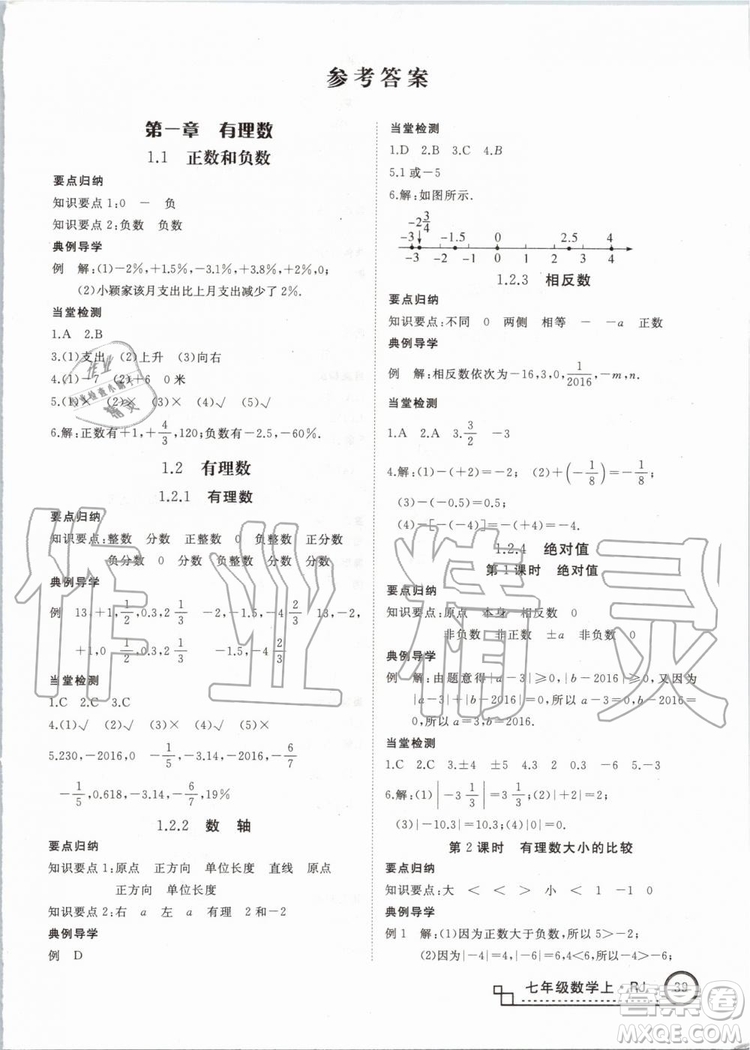 参考答案
第一章 有理数
1.1 正数和负数
要点归纳
知识要点1:0 － 负
知识要点2:负数 负数
典例导学
例 解:(1)－2%,＋1.5%,－3.1%,＋3.8%,＋2%,0;
(2)小颖家该月支出比上月支出减少了2%.
当堂检测
1.A 2.B
3.(1)支出 (2)上升 (3)向右
4.(1)－7 (2)＋6 0米
5.(1)× (2)× (3)× (4)√ (5)√
6.解:正数有＋1,＋4/3,120;负数有－2.5,－60%.
1.2 有理数
1.2.1 有理数
要点归纳
知识要点:整数 分数 正整数 0 负整数 正分数
负分数 0 分数 负整数 0 分数
典例导学
例 13,＋1,1/2,0.3,2 1/3 －2,－1.5,－4 1/3 13,－2,
＋1,0 1/2,0.3,2 1/3 －1.5,－4 1/3
当堂检测
1.C 2.C 3.C
4.(1)√ (2)√ (3)× (4)× (5)×
5.230,－2016,0 －1/5,－3.14,－2016,－6/7
－1/5,0.618,－3.14,－6/7,19%
1.2.2 数 轴
要点归纳
知识要点1:原点 正方向 单位长度 直线 原点
正方向 单位长度
知识要点2:右 a 左 a 有理 2和－2
典例导学
例 D
当堂检测
1.D 2.B 3.C 4.B
5.1或－5
6.解:如图所示.
－2 3/4
－3 －2 －1 0 1 2 2.5 3 4
1.2.3 相反数
要点归纳
知识要点:不同 0 两侧 相等 － －a 正数
典例导学
例 解:相反数依次为－16,3,0,1/2016,－m,n.
当堂检测
1.A 2.A 3.3/2 －3
4.解:(1)－(＋2)＝－2; (2)＋(－1/8)＝－1/8;
(3)－(－0.5)＝0.5;
(4)－[－(－4)]＝－(＋4)＝－4.
1.2.4 绝对值
第1课时 绝对值
要点归纳
知识要点:原点 本身 相反数 0
非负数 非正数 ±a 非负数 0
典例导学
例 解:由题意得|a－3|≥0,|b－2016|≥0,所以
|a－3|＝|b－2016|＝0,所以a＝3,b＝2016.
当堂检测
1.C 2.C 3.±4 ±5 4.3 0 －3 5.－3
6.解:(1)|－3 1/3|＝3 1/3; (2)|＋2|＝2;
(3)|－10.3|＝10.3;(4)|0|＝0.
第2课时 有理数大小的比较
要点归纳
知识要点:大 ＜ ＜ ＞ 小 大 －1 0
典例导学
例1 解:(1)因为正数大于负数,所以5＞－2;
(2)因为|－4|＝4,|－6|＝6,4＜6,所以－4＞－6;
七年级数学上·RJ
39
作业精灵
答案圈
MXQE.COM